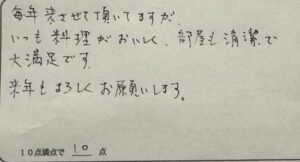 毎年来させて頂いてますが、
いつも料理がおいしく、部屋も清潔で
大満足です。
来年もよろしくお願いします。
10点満点で 10 点